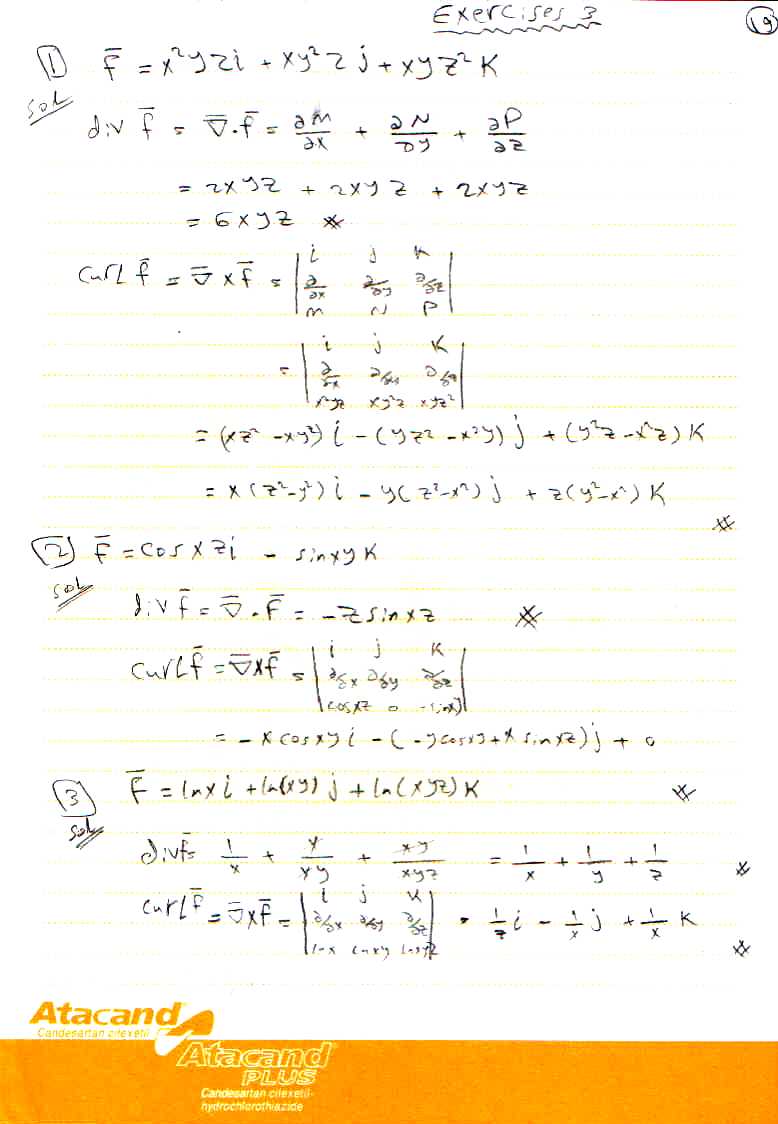 Exercises 3
19
1 F̄ = x²yzi + xy²zj + xyz²K
Sol
div F̄ = ∇̄.F̄ = ∂M/∂x + ∂N/∂y + ∂P/∂z
= 2xyz + 2xyz + 2xyz
= 6xyz
Curl F̄ = ∇̄ x F̄ = | i j K
∂/∂x ∂/∂y ∂/∂z
M N P |
= | i j K
∂/∂x ∂/∂y ∂/∂z
x²yz xy²z xyz² |
= (xz² - xy²) i - (yz² - x²y) j + (y²z - x²z) K
= x(z²-y²) i - y(z²-x²) j + z(y²-x²) K
2 F̄ = cos xzi - sinxy K
Sol
div F̄ = ∇̄.F̄ = -z sinxz
Curl F̄ = ∇̄xF̄ = | i j K
∂/∂x ∂/∂y ∂/∂z
cosxz 0 -sinxy |
= -x cosxy i - (-y cosxy + x sinxz) j + 0
3 F̄ = lnx i + ln(xy) j + ln(xyz) K
Sol
div F̄ = 1/x + x/xy + xy/xyz = 1/x + 1/y + 1/z
Curl F̄ = ∇̄xF̄ = | i j K
∂/∂x ∂/∂y ∂/∂z
lnx lnxy lnxyz | = 1/z i - 1/x j + 1/x K
Atacand
Candesartan cilexetil
Atacand
PLUS
Candesartan cilexetil-
hydrochlorothiazide